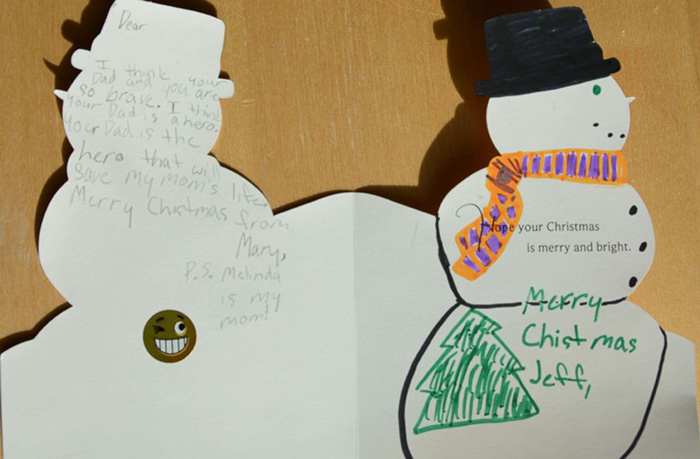 Dear
I think your
Dad and you are
so brave. I think
your Dad is a hero.
your Dad is the
hero that will
save my mom's life
Merry Chistmas from
Mary,
P.S. Melinda
is my
mom!
Hope your Christmas
is merry and bright.
Merry
Chistmas
Jeff,